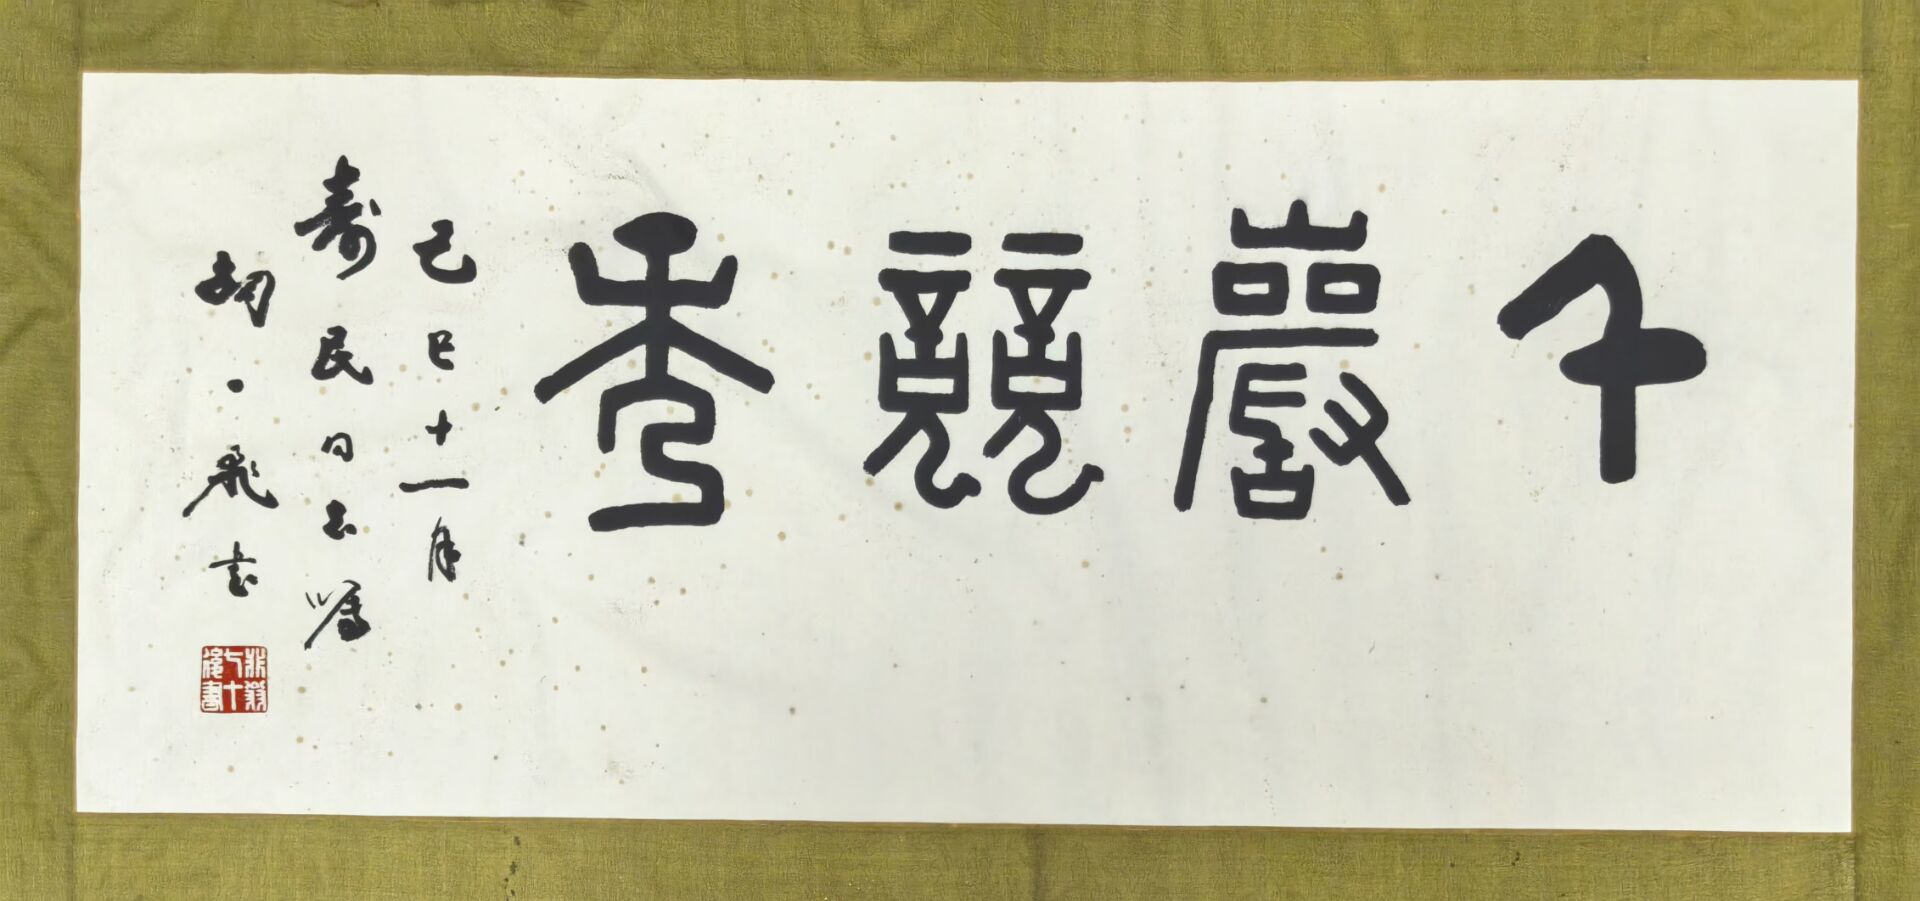 千巖競秀
己巳十一月
壽民同志囑
胡一飛書
非翁七十後書